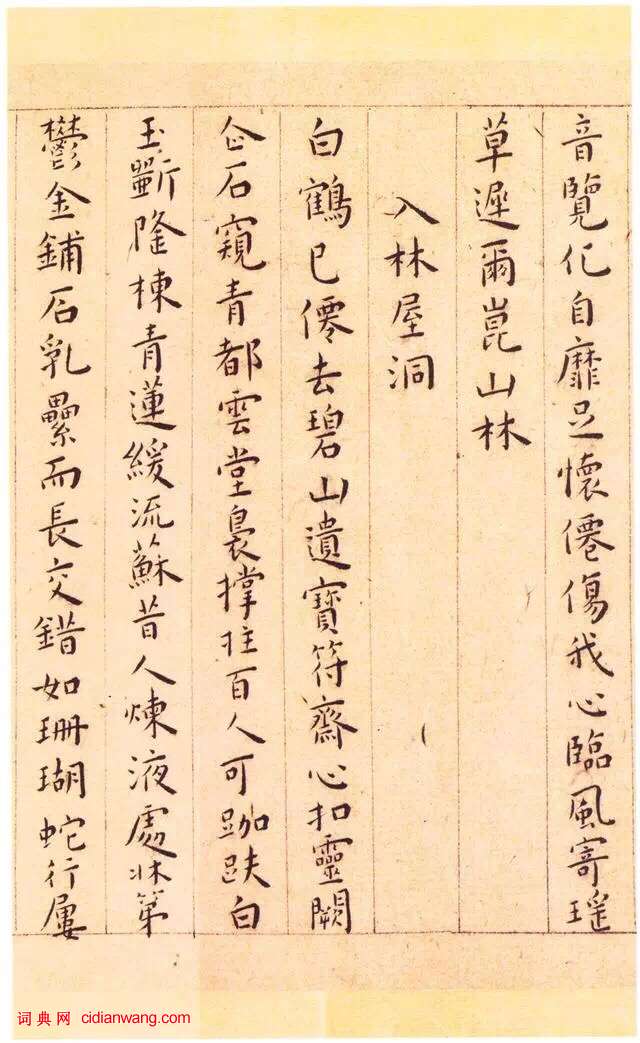 音覽化自靡足懷僊傷我心臨風寄瑤
草遲爾崑山林
入林屋洞
白鶴已僊去碧山遺寶符齋心扣靈闕
企石窺青都雲堂裊撐拄百人可跏趺白
玉斵隆棟青蓮緩流蘇昔人煉液處牀第
鬱金鋪石乳纍而長交錯如珊瑚蛇行屢
词典网 cidianwang.com